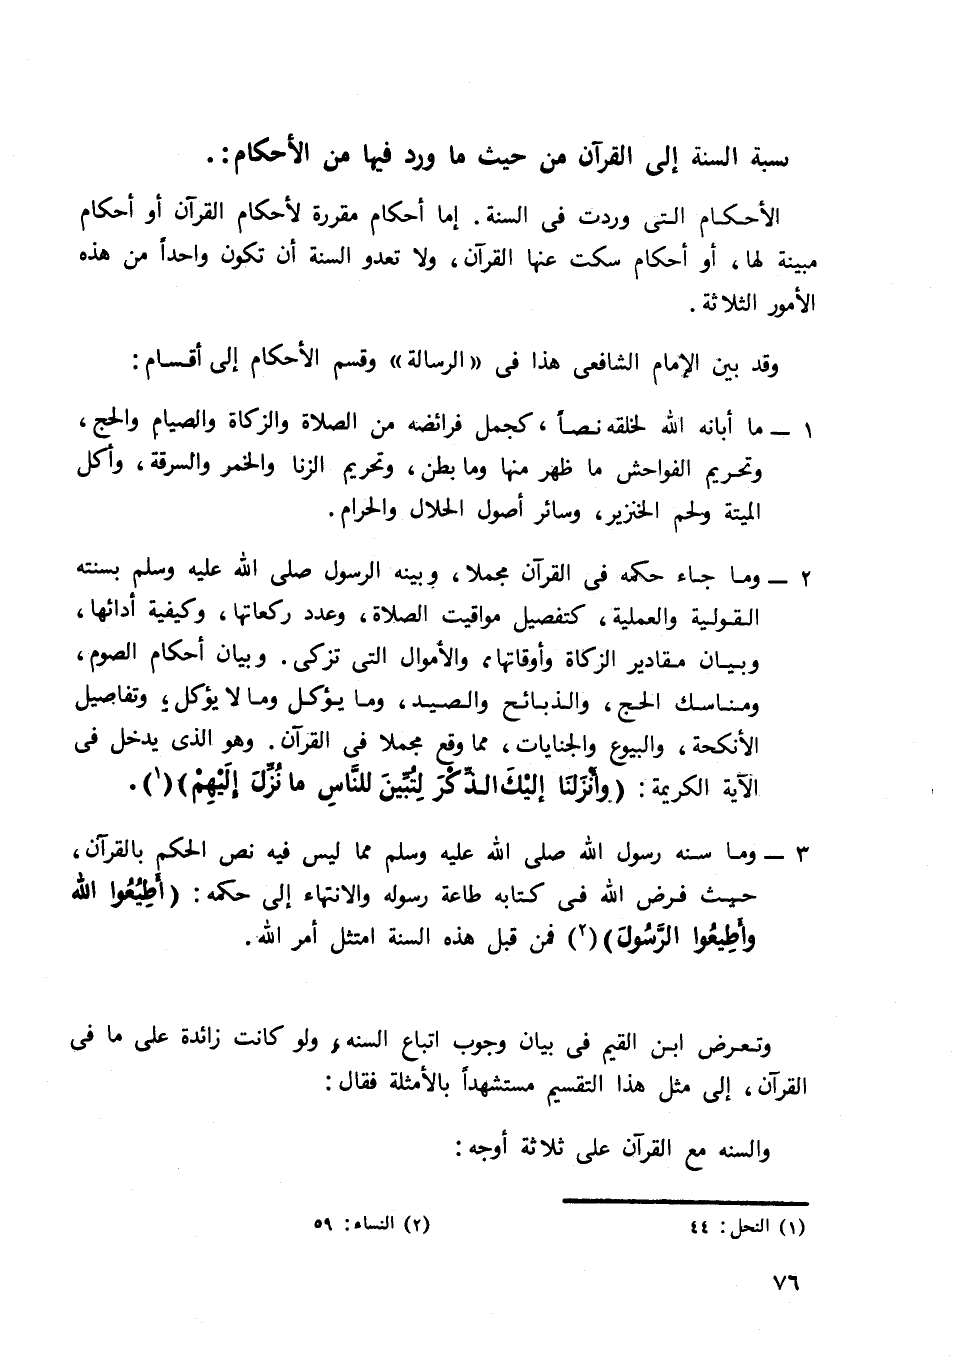 نسبة السنة إلى القرآن من حيث ما ورد فيها من الأحكام: .
الأحكام التى وردت فى السنة. إما أحكام مقررة لأحكام القرآن أو أحكام
مبينة لها، أو أحكام سكت عنها القرآن، ولا تعدو السنة أن تكون واحداً من هذه
الأمور الثلاثة.
وقد بين الإمام الشافعى هذا فى «الرسالة» وقسم الأحكام إلى أقسام:
١ – ما أبانه الله لخلقه نصاً، كجمل فرائضه من الصلاة والزكاة والصيام والحج،
وتحريم الفواحش ما ظهر منها وما بطن، وتحريم الزنا والخمر والسرقة، وأكل
الميتة ولحم الخنزير، وسائر أصول الحلال والحرام.
٢ – وما جاء حكمه فى القرآن مجملا، وبينه الرسول صلى الله عليه وسلم بسنته
القولية والعملية، كتفصيل مواقيت الصلاة، وعدد ركعاتها، وكيفية أدائها،
وبيان مقادير الزكاة وأوقاتها، والأموال التى تزكى. وبيان أحكام الصوم،
ومناسك الحج، والذبائح والصيد، وما يؤكل وما لا يؤكل، وتفاصيل
الأنكحة، والبيوع والجنايات، مما وقع مجملا فى القرآن. وهو الذى يدخل فى
الآية الكريمة: (وأَنْزَلنَا إليْكَ الذِّكْرَ لِتُبِّينَ للنَّاسِ ما نُزِّلَ إلَيْهِمْ)(١).
٣ – وما سنه رسول الله صلى الله عليه وسلم مما ليس فيه نص الحكم بالقرآن،
حيث فرض الله فى كتابه طاعة رسوله والانتهاء إلى حكمه: (أَطِيْعُوا الله
وأَطِيعُوا الرَّسُولَ)(٢) فمن قبل هذه السنة امتثل أمر الله.
وتعرض ابن القيم فى بيان وجوب اتباع السنه، ولو كانت زائدة على ما فى
القرآن، إلى مثل هذا التقسيم مستشهداً بالأمثلة فقال:
والسنه مع القرآن على ثلاثة أوجه:
(١) النحل: ٤٤ (٢) النساء: ٥٩
٧٦